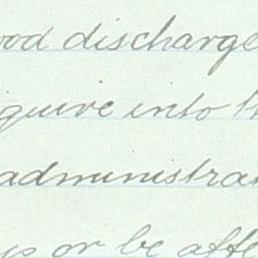 ood discharge
quire into th
administrat
ys or be affe